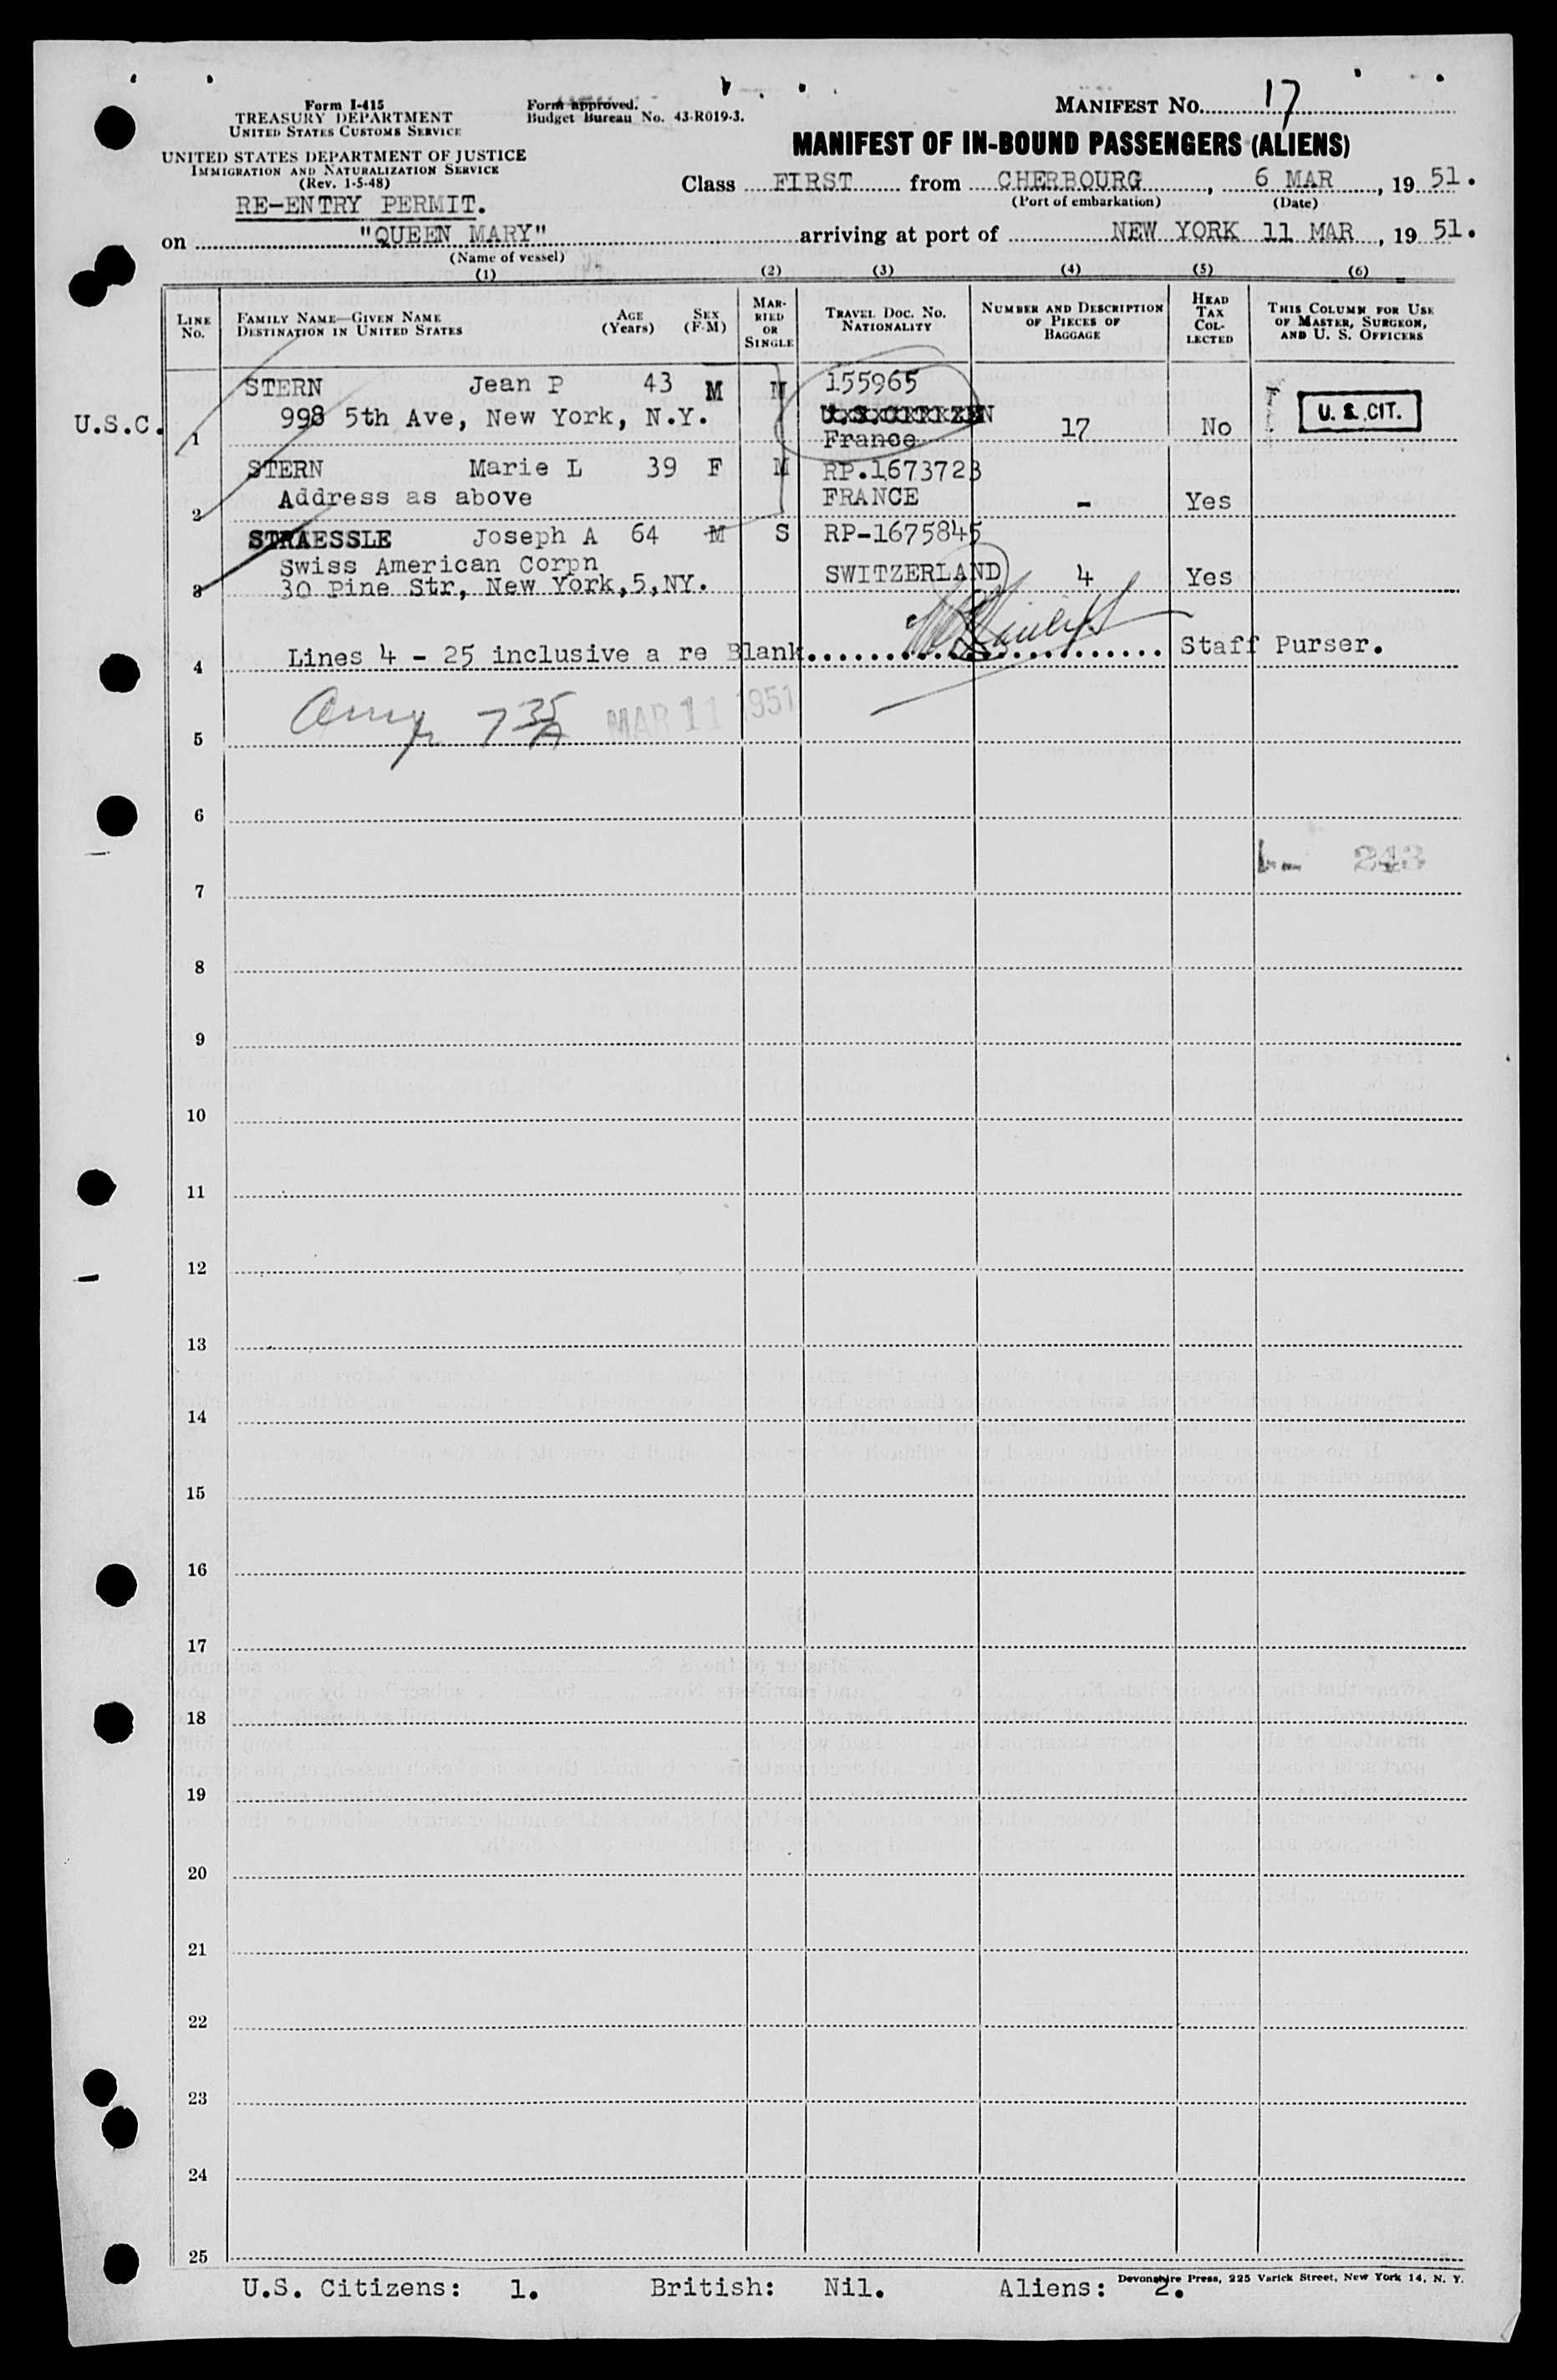 Form I-415
TREASURY DEPARTMENT
UNITED STATES CUSTOMS SERVICE
UNITED STATES DEPARTMENT OF JUSTICE
IMMIGRATION AND NATURALIZATION SERVICE
(Rev. 1-5-48)
RE-ENTRY PERMIT.
Form approved.
Budget Bureau No. 43-R019-3.
MANIFEST No. 17
MANIFEST OF IN-BOUND PASSENGERS (ALIENS)
Class FIRST from CHERBOURG, 6 MAR, 19 51.
(Port of embarkation) (Date)
on "QUEEN MARY" arriving at port of NEW YORK 11 MAR, 19 51.
(Name of vessel)
(1) (2) (3) (4) (5) (6)
LINE No. FAMILY NAME—GIVEN NAME DESTINATION IN UNITED STATES AGE (Years) SEX (F-M) MARRIED OR SINGLE TRAVEL DOC. NO. NATIONALITY NUMBER AND DESCRIPTION OF PIECES OF BAGGAGE HEAD TAX COLLECTED THIS COLUMN FOR USE OF MASTER, SURGEON, AND U. S. OFFICERS
STERN Jean P 43 M M 155965
U.S.C. 998 5th Ave, New York, N.Y. U.S.CITIZEN U. S. CIT.
1 France 17 No
STERN Marie L 39 F M RP.1673723
2 Address as above FRANCE - Yes
STRAESSLE Joseph A 64 M S RP-1675845
Swiss American Corpn
3 30 Pine Str, New York,5,NY. SWITZERLAND 4 Yes
4 Lines 4 - 25 inclusive a re Blank. Staff Purser.
5 7 35 A MAR 11 1951
6
7 243
8
9
10
11
12
13
14
15
16
17
18
19
20
21
22
23
24
25
Devonshire Press, 225 Varick Street, New York 14, N. Y.
U.S. Citizens: 1. British: Nil. Aliens: 2.